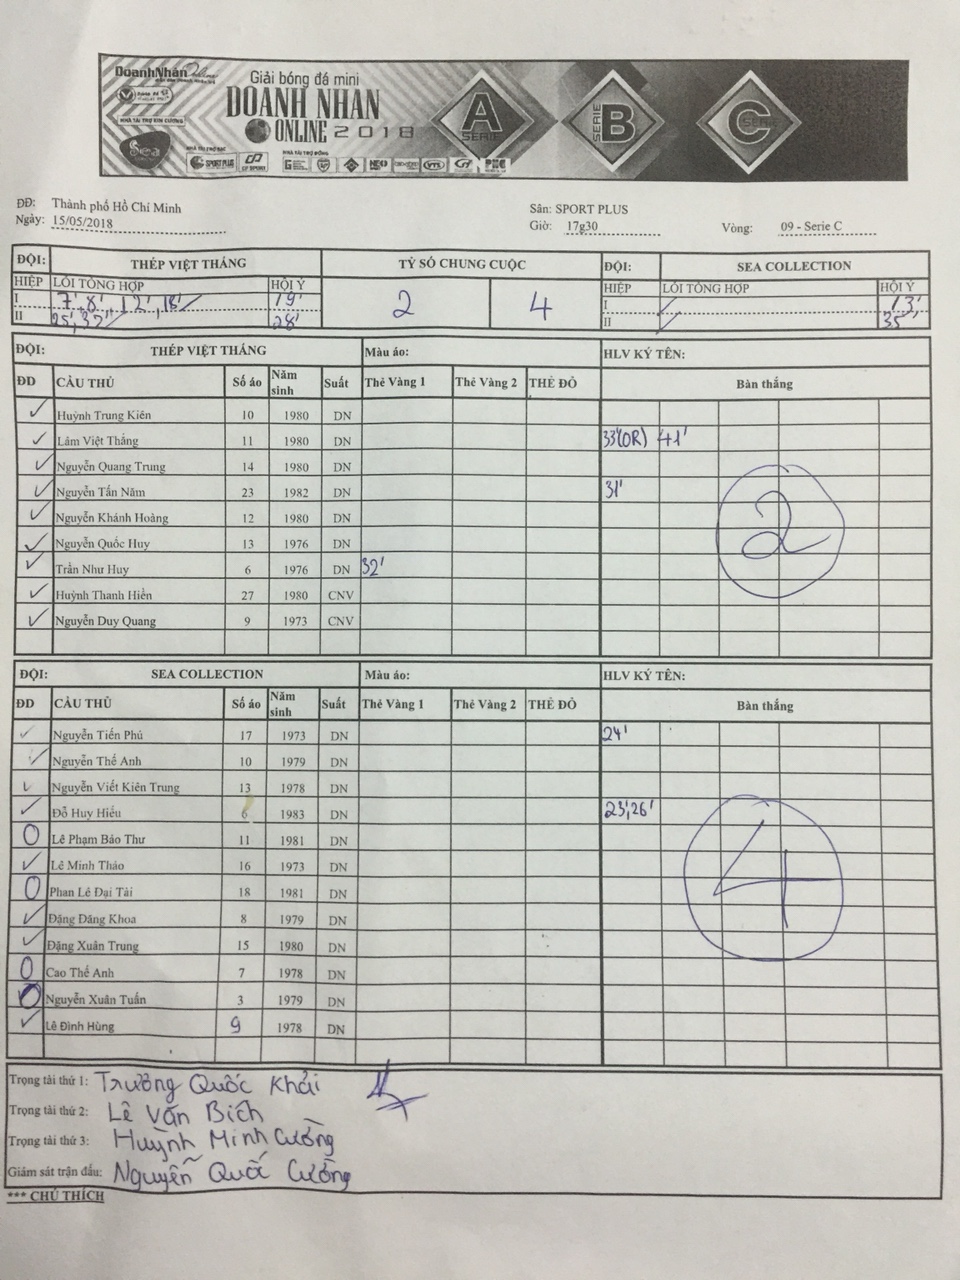 DoanhNhân
Giải bóng đá mini
DOANH NHÂN
ONLINE 2018
NHÀ TÀI TRỢ KIM CƯƠNG
Sea
NHÀ TÀI TRỢ BẠC
SPORT PLUS
CP SPORT
NHÀ TÀI TRỢ ĐỒNG
NEO
A
SERIE
SERIE
B
C
SERIE
ĐĐ: Thành phố Hồ Chí Minh
Sân: SPORT PLUS
Ngày: 15/05/2018
Giờ: 17g30
Vòng: 09 - Serie C
ĐỘI: THÉP VIỆT THẮNG TỶ SỐ CHUNG CUỘC ĐỘI: SEA COLLECTION
HIỆP LỖI TỔNG HỢP HỘI Ý HIỆP LỖI TỔNG HỢP HỘI Ý
I 7', 8', 12', 18' 19' 2 4 I 13'
II 25', 35' 28' II 35'
ĐỘI: THÉP VIỆT THẮNG Màu áo: HLV KÝ TÊN:
ĐD CẦU THỦ Số áo Năm sinh Suất Thẻ Vàng 1 Thẻ Vàng 2 THẺ ĐỎ Bàn thắng
Huỳnh Trung Kiên 10 1980 DN
Lâm Việt Thắng 11 1980 DN 33'(OR) 41'
Nguyễn Quang Trung 14 1980 DN
Nguyễn Tấn Năm 23 1982 DN 31'
Nguyễn Khánh Hoàng 12 1980 DN
Nguyễn Quốc Huy 13 1976 DN
2
Trần Như Huy 6 1976 DN 32'
Huỳnh Thanh Hiền 27 1980 CNV
Nguyễn Duy Quang 9 1973 CNV
ĐỘI: SEA COLLECTION Màu áo: HLV KÝ TÊN:
ĐD CẦU THỦ Số áo Năm sinh Suất Thẻ Vàng 1 Thẻ Vàng 2 THẺ ĐỎ Bàn thắng
Nguyễn Tiến Phú 17 1973 DN 24'
Nguyễn Thế Anh 10 1979 DN
Nguyễn Viết Kiên Trung 13 1978 DN
Đỗ Huy Hiếu 6 1983 DN 23', 26'
0 Lê Phạm Bảo Thư 11 1981 DN
Lê Minh Thảo 16 1973 DN
0 Phan Lê Đại Tài 18 1981 DN
4
Đặng Đăng Khoa 8 1979 DN
Đặng Xuân Trung 15 1980 DN
0 Cao Thế Anh 7 1978 DN
0 Nguyễn Xuân Tuấn 3 1979 DN
Lê Đình Hùng 9 1978 DN
Trọng tài thứ 1: Trương Quốc Khải
Trọng tài thứ 2: Lê Văn Bích
Trọng tài thứ 3: Huỳnh Minh Cường
Giám sát trận đấu: Nguyễn Quốc Cường
*** CHÚ THÍCH